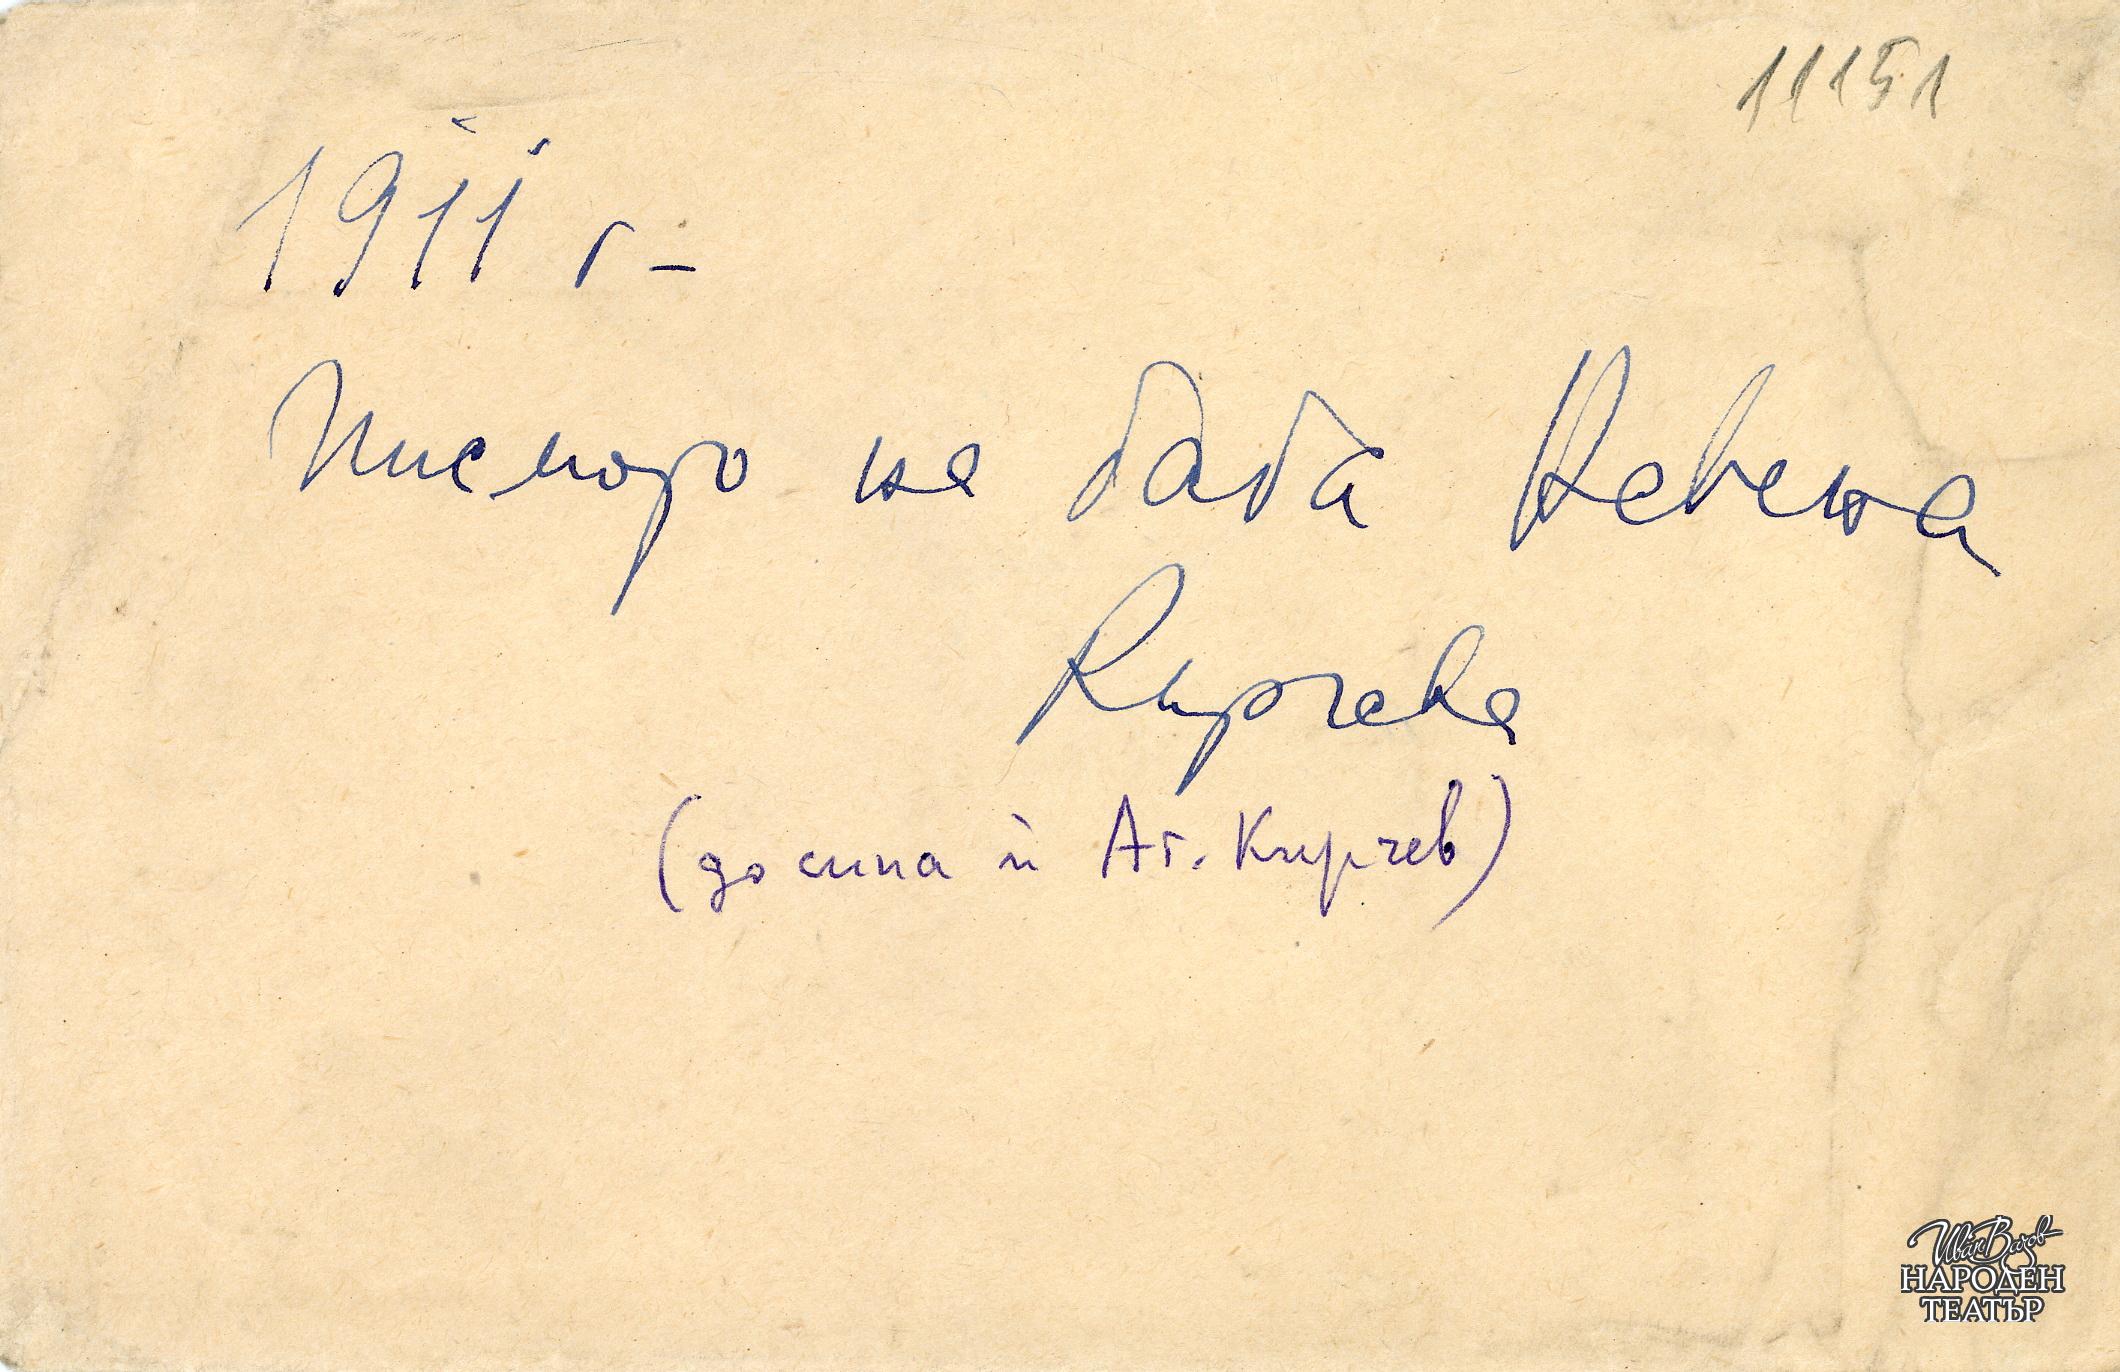 11151
1911 г –
Писмото на баба Невена
Кирчева
(до сина ѝ Ат. Кирчев)
Иван Вазов
НАРОДЕН
ТЕАТЪР